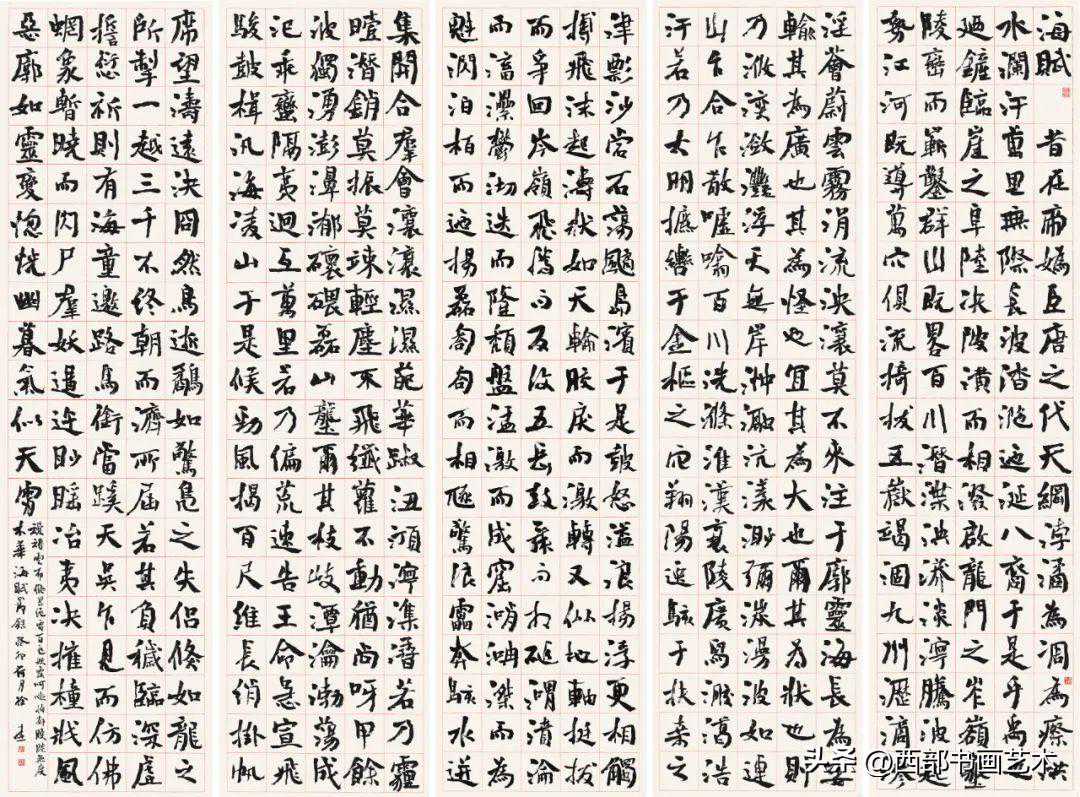 海賦 昔在帝媯臣唐之代天綱浡潏為凋為瘵洪
水瀾汗萬里無際長波涾㴔迤涎八裔于是乎禹也
廼鏟臨崖之阜陸決陂潢而相浚啟龍門之岝嶺墾
陵巒而嶄鑿群山既畧百川潛渫泱漭淡濘騰波赴
勢江河既導萬穴俱流掎拔五嶽竭涸九州瀝滴滲
淫薈蔚雲霧涓流泱瀼莫不來注于廓靈海長為委
輸其為廣也其為怪也宜其為大也爾其為狀也則
乃浟湙瀲灩浮天無岸沖瀜沆瀁渺瀰湠漫波如連
山乍合乍散噓噏百川洗滌淮漢襄陵廣舄浩
汗若乃大明摭轡于金樞之穴翔陽逸駭于扶桑之
津彯沙礐石蕩䬍島濱于是鼓怒溢浪揚浮更相觸
搏飛沫起濤狀如天輪膠戾而激轉又似地軸挺拔
而爭回岑嶺飛騰而反復五岳鼓舞而相磓渭濆淪
而滀漯鬱沏迭而隆頹盤盓激而成窟㴐滐而為
魁泊柏而迤揚磊匒匌而相豗驚浪雷奔駭水迸
集開合羣會瀼瀼濕濕葩華踧沑澒濘潗若乃霾
曀潛銷莫振莫竦輕塵不飛纖蘿不動猶尚呀呷餘
波獨湧澎濞灪碨磊山壟爾其枝岐潭瀹渤蕩成
汜乖蠻隔夷迴互萬里若乃偏荒速告王命急宣飛
駿鼓楫汎海凌山于是候勁風揭百尺維長綃掛帆
席望濤遠決冏然鳥逝鷸如驚鳧之失侶倏如龍之
所掣一越三千不終朝而濟所屆若其負穢臨深虛
誓愆祈則有海童邀路馬銜當蹊天吳乍見而仿佛
蝄象暫曉而閃尸羣妖遘迕眇䁘冶夷決摧橦戕風
惡廓如靈變惚怳幽暮氣似天霄
靉靆雲布絕電百色妖露呵嗽掩鬱矆睒無度
木華海賦節錄癸卯荷月徐
头条 @西部书画艺术